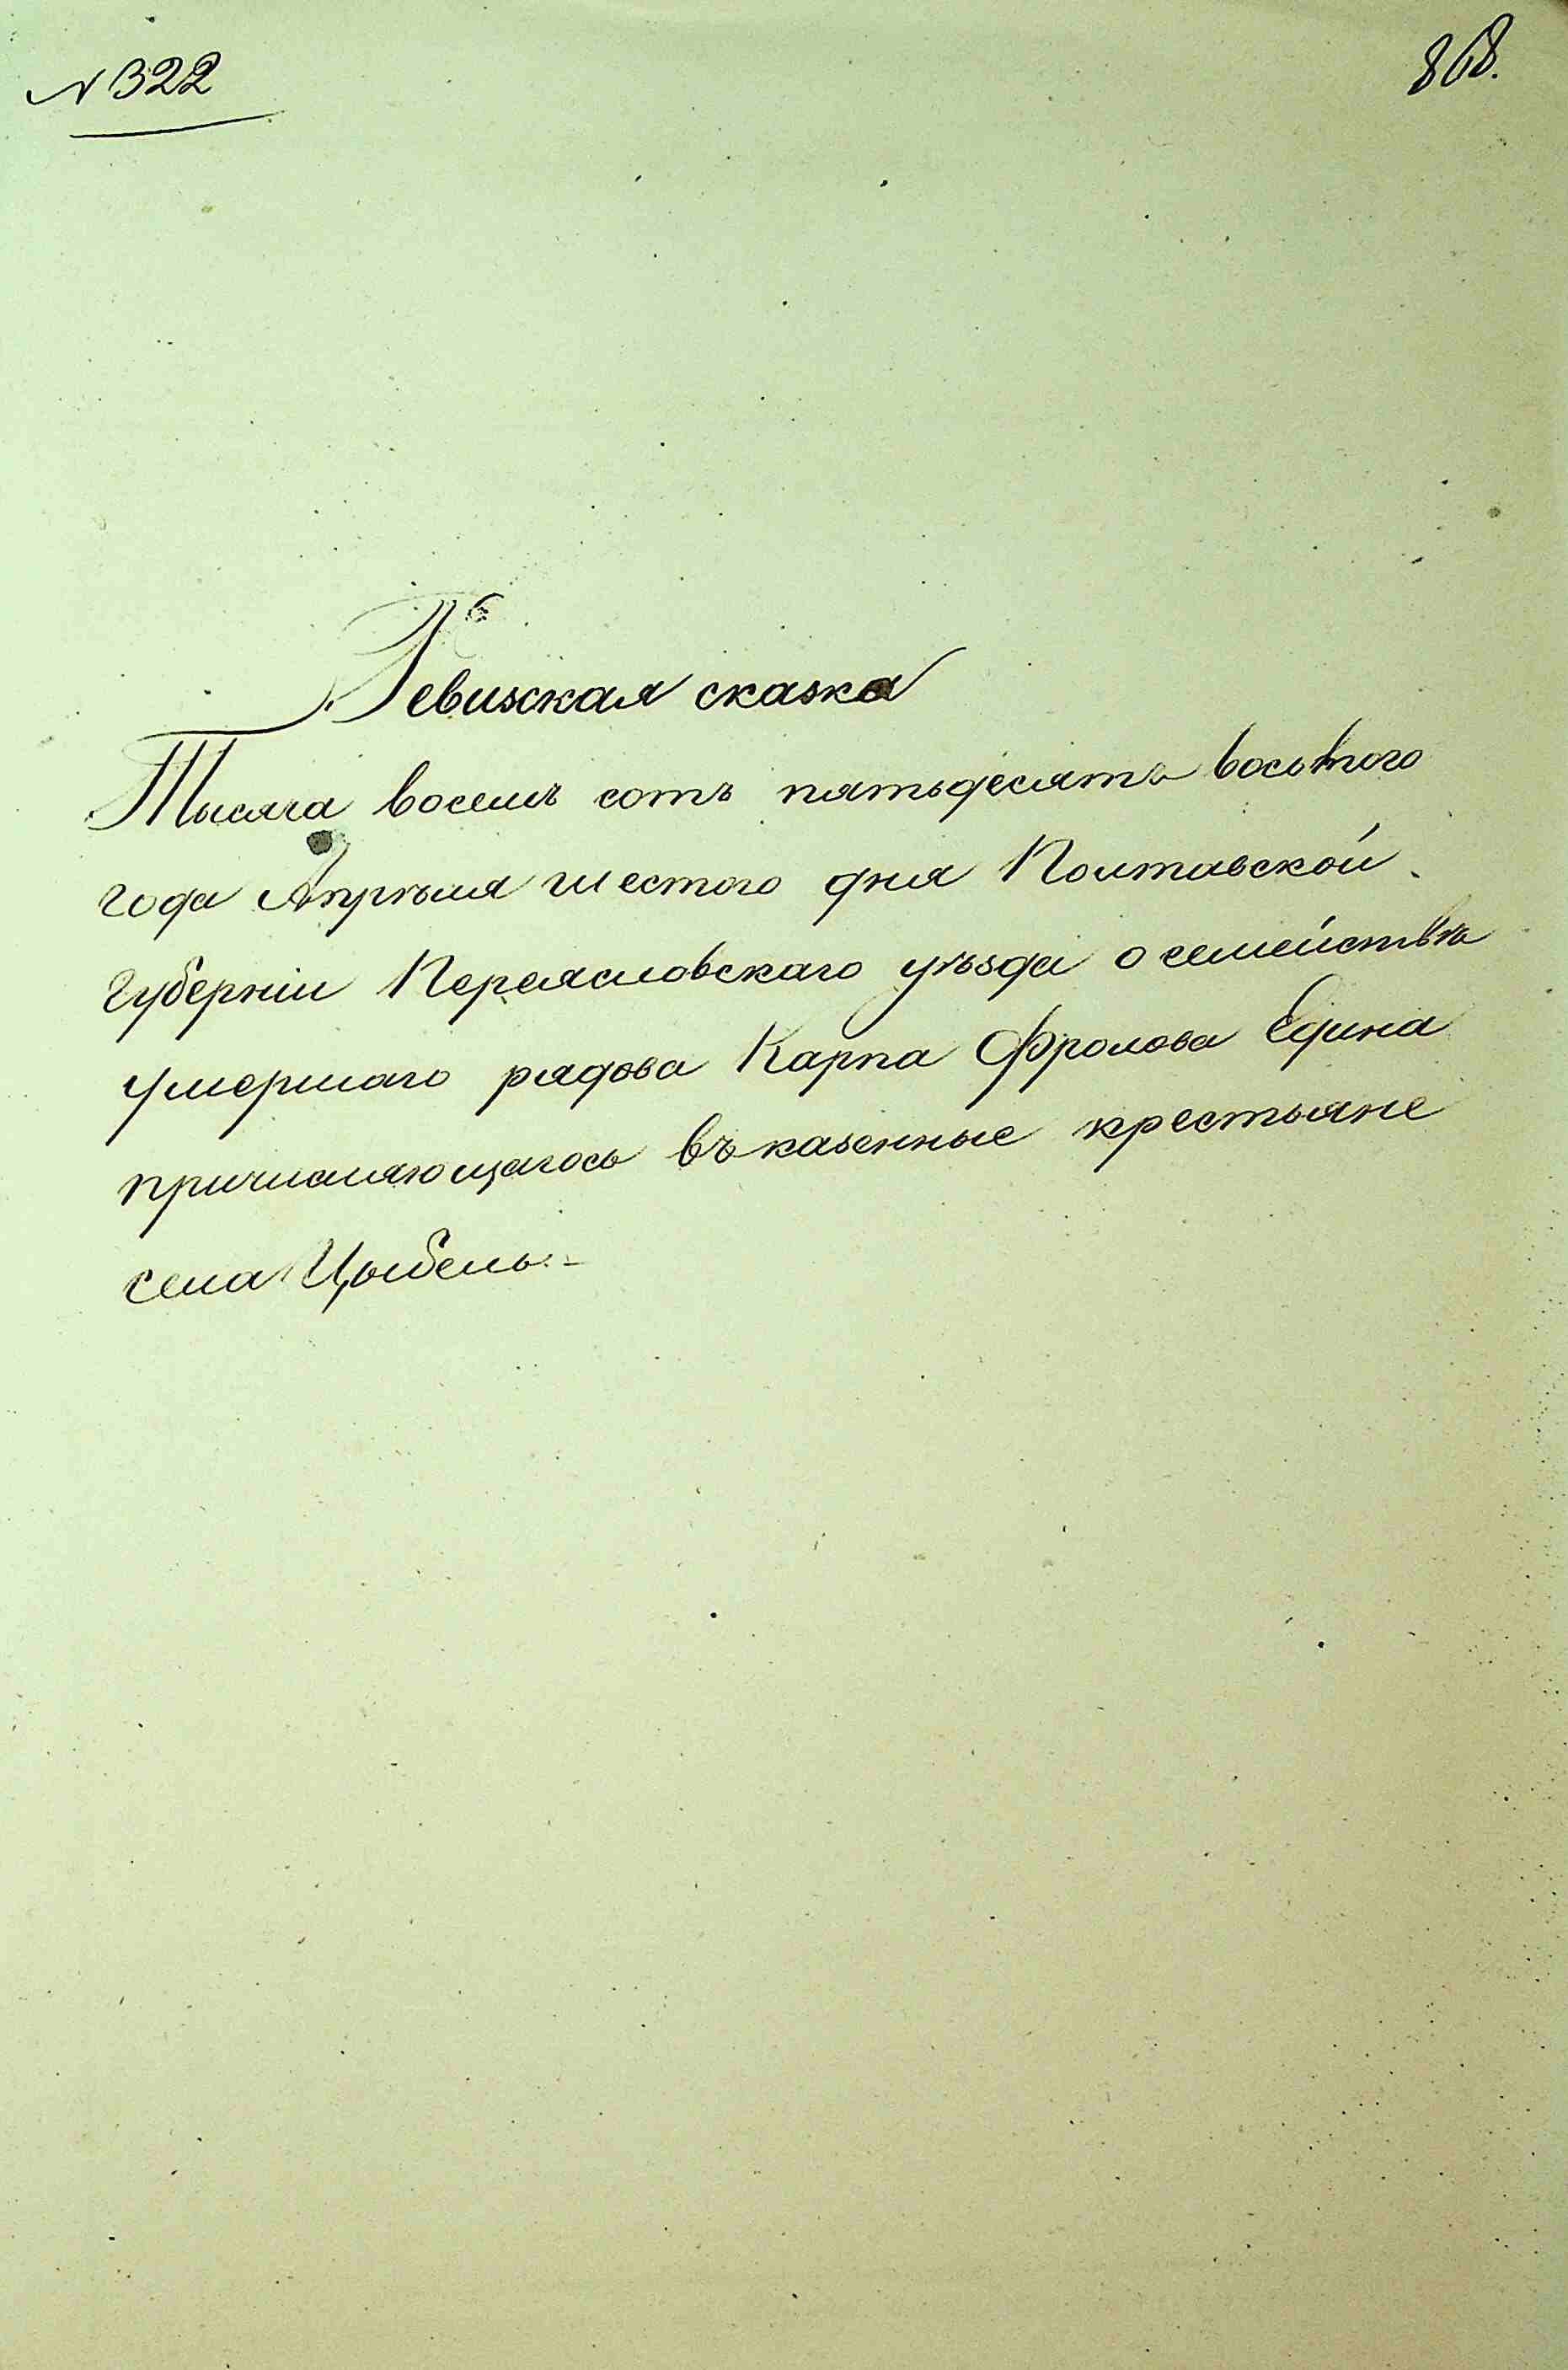 N 322
868.
Ревизская сказка
Тысяча восемъ сотъ пятьдесятъ восьмого
года Апрѣля шестого дня Полтавской
губерніи Переясловскаго уѣзда о семействѣ
умершаго рядова Карпа Фролова Едина
причисляющагось въ казенные крестьяне
села Цыбель.-